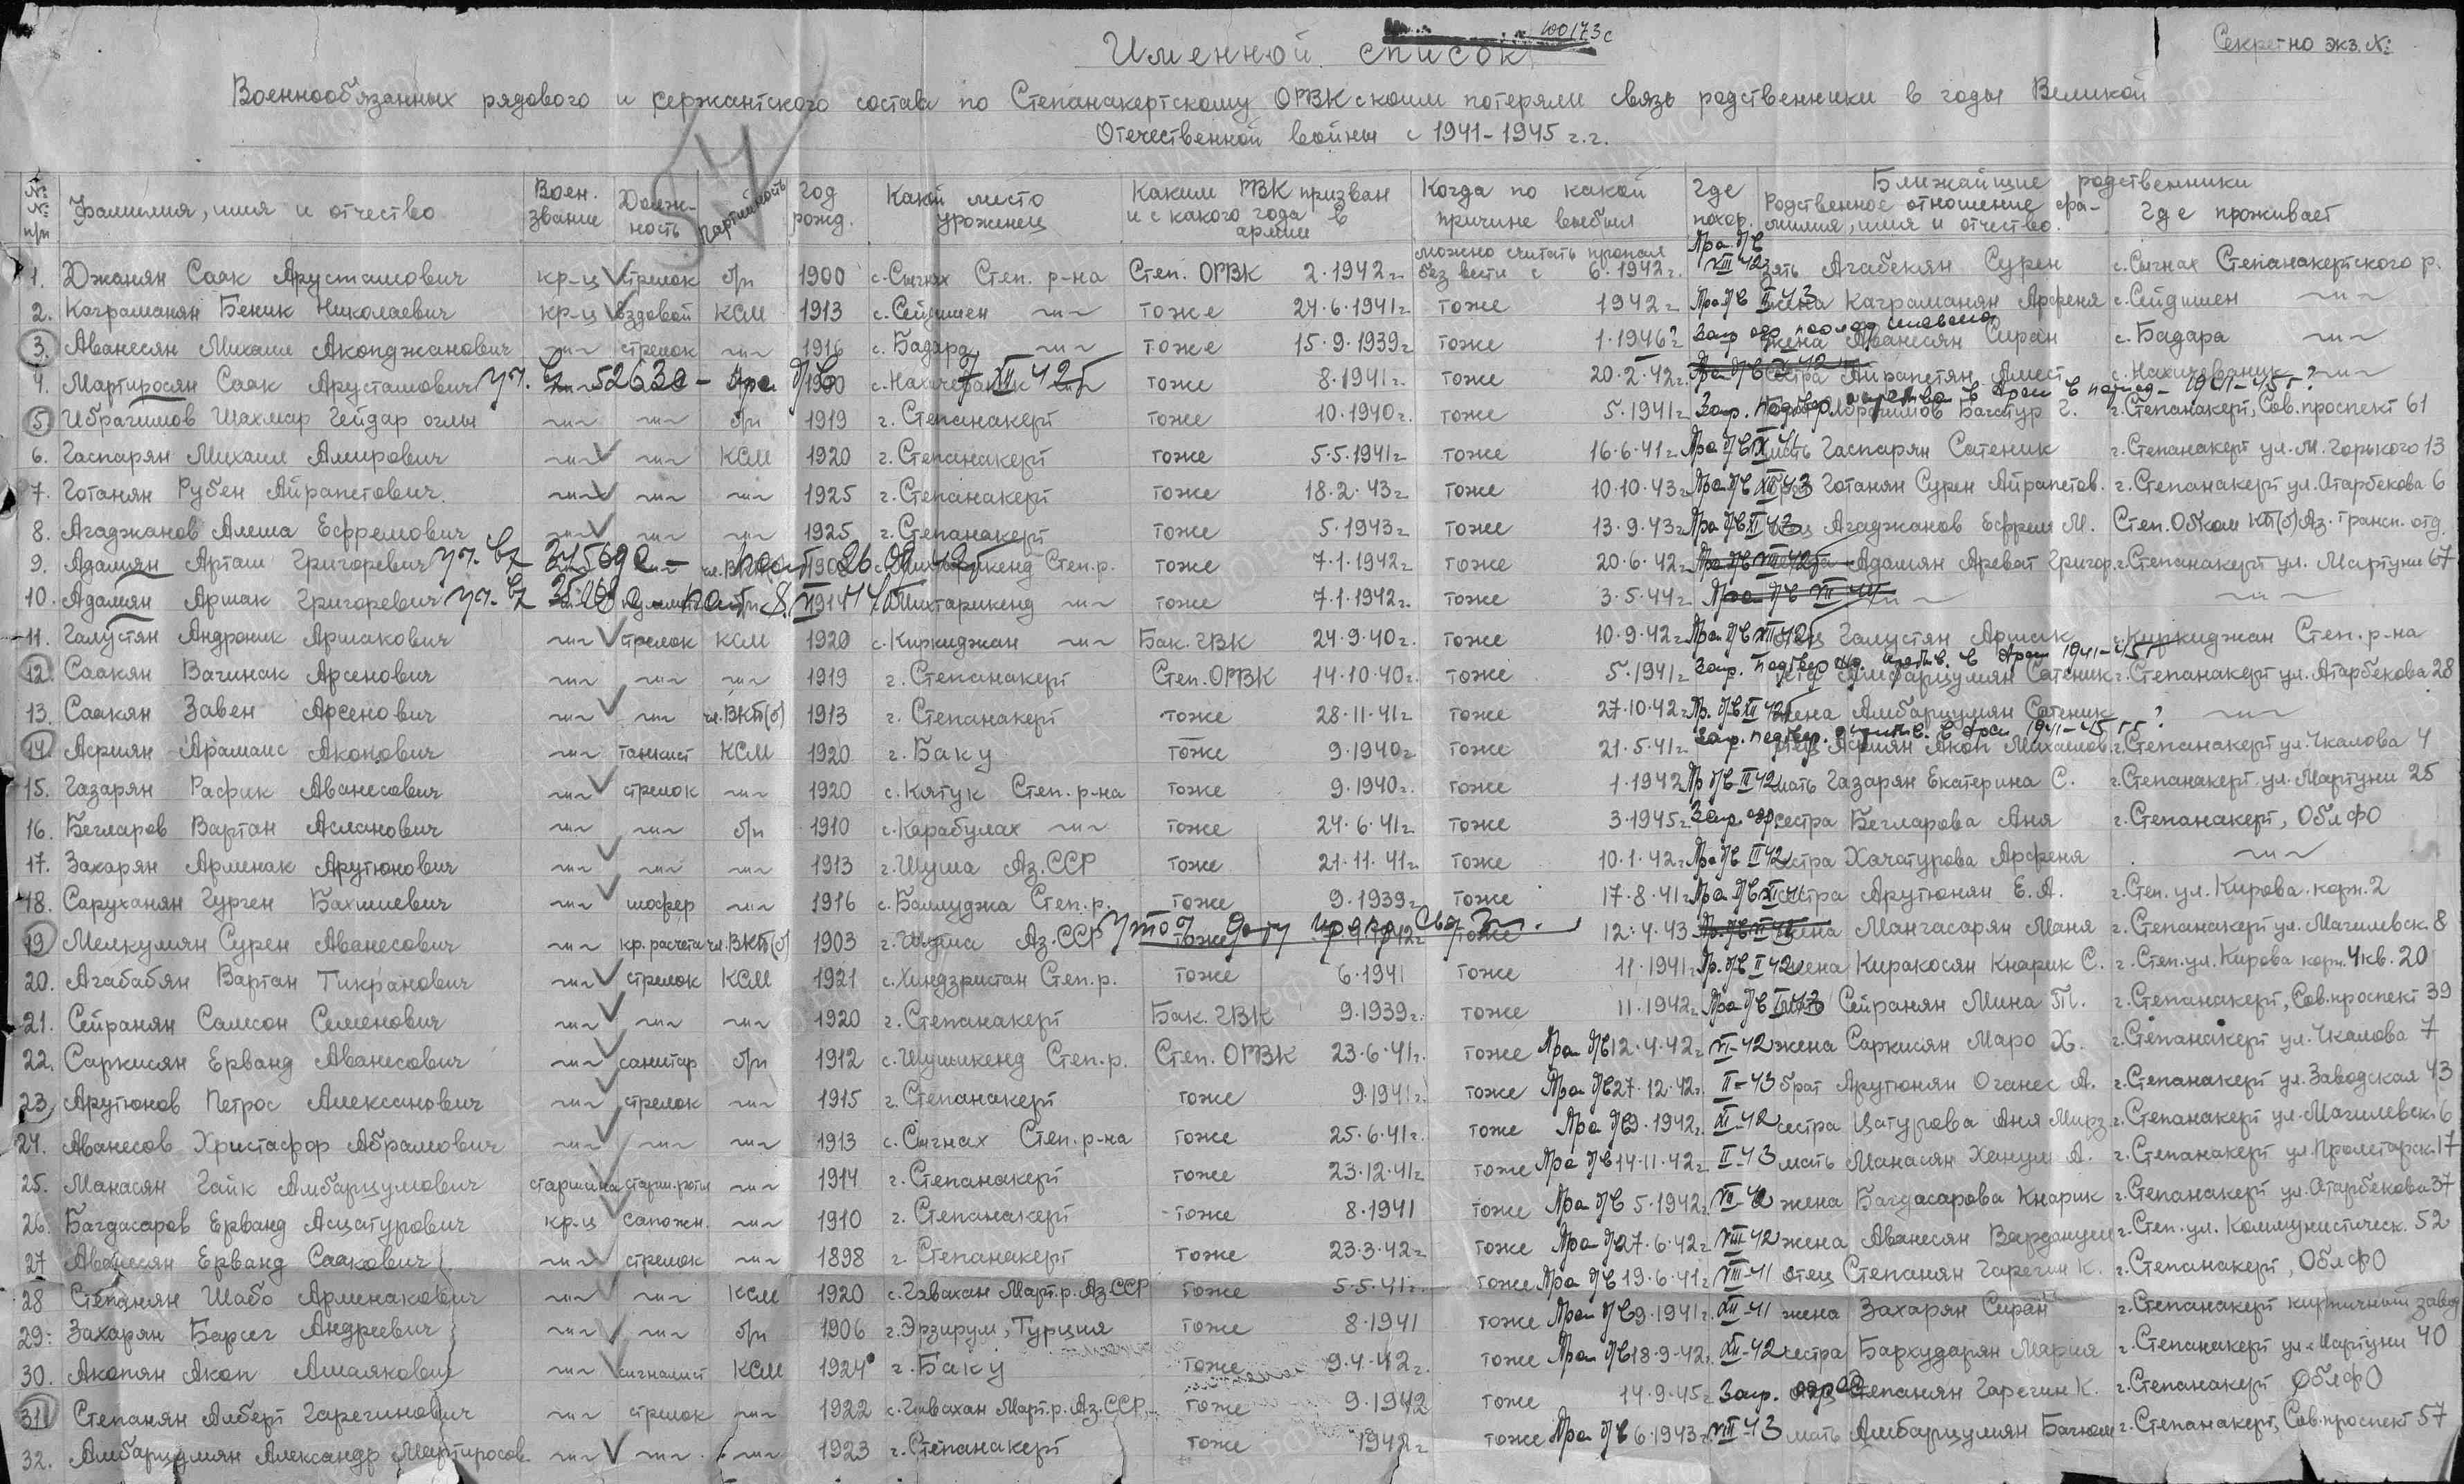 Секретно экз. №:
400173с
Именной список
Военнообязанных рядового и сержантского состава по Степанакертскому ОРВК с коим потеряли связь родственники в годы Великой
Отечественной войны с 1941-1945 г.г.
№ № п/п Фамилия, имя и отчество Воен. звание Долж-ность Партийность Год рожд. Какой место уроженец Каким РВК призван и с какого года в армии Когда по какой причине выбыл Где похор. Ближайщие родственники Родственное отношение фа-милия, имя и отчество. Где проживает
1. Джанян Саак Арустамович кр-ц стрелок б/п 1900 с. Сыгнах Степ. р-на Степ. ОРВК 2.1942г. можно считать пропал без вести с 6.1942г. зять Агабекян Сурен с. Сыгнах Степанакертского р.
2. Каграманян Беник Николаевич кр-ц ездовой КСМ 1913 с. Сейдишен -"- тоже 24.6.1941г. тоже 1942г жена Каграманян Арфеня с. Сейдишен -"-
3. Аванесян Михаил Акопджанович -"- стрелок -"- 1916 с. Бадара -"- тоже 15.9.1939г тоже 1.1946? жена Аванесян Сиран с. Бадара -"-
4. Мартиросян Саак Арустамович тоже 8.1941г. тоже 20.2.42г. сестра Айрапетян с. Нахичеваник -"-
5. Ибрагимов Шахмар Гейдар оглы -"- -"- б/п 1919 г. Степанакерт тоже 10.1940г. тоже 5.1941г г. Степанакерт, Сов. проспект 61
6. Гаспарян Михаил Амирович -"- -"- КСМ 1920 г. Степанакерт тоже 5.5.1941г тоже 16.6.41г мать Гаспарян Сатеник г. Степанакерт ул. М. Горького 13
7. Готанян Рубен Айрапетович. -"- -"- -"- 1925 г. Степанакерт тоже 18.2.43г тоже 10.10.43г Готанян Сурен Айрапетов. г. Степанакерт ул. Атарбекова 6
8. Агаджанов Алеша Ефремович -"- 1925 г. Степанакерт тоже 5.1943г тоже 13.9.43г Агаджанов Ефрем М. Степ. Обком КП(б) Аз. трансп. отд.
9. Адамян Арташ Григоревич Степ. р. тоже 7.1.1942г тоже 20.6.42г Адамян Ареват Григор. г. Степанакерт ул. Мартуни 67
10. Адамян Аршак Григоревич 1914 -"- тоже 7.1.1942г. тоже 3.5.44г -"- -"-
11. Галустян Андроник Аршакович -"- стрелок КСМ 1920 с. Киркиджан -"- Бак. ГВК 24.9.40г. тоже 10.9.42г отец Галустян Аршак с. Киркиджан Степ. р-на
12. Саакян Вагинак Арсенович -"- -"- -"- 1919 г. Степанакерт Степ. ОРВК 14.10.40г. тоже 5.1941г Амбарцумян Сатеник г. Степанакерт ул. Атарбекова 28
13. Саакян Завен Арсенович -"- -"- чл. ВКП(б) 1913 г. Степанакерт тоже 28.11.41г тоже 27.10.42г жена Амбарцумян Сатеник -"-
14. Асриян Арамаис Акопович -"- танкист КСМ 1920 г. Баку тоже 9.1940г тоже 21.5.41г. отец Асриян Акоп Михайлов. г. Степанакерт ул. Чкалова 4
15. Газарян Рафик Аванесович -"- стрелок -"- 1920 с. Кятук Степ. р-на тоже 9.1940г. тоже 1.1942 мать Газарян Екатерина С. г. Степанакерт ул. Мартуни 25
16. Бегларов Вартан Асланович -"- -"- б/п 1910 с. Карабулах -"- тоже 24.6.41г тоже 3.1945г сестра Бегларова Аня г. Степанакерт, ОблФО
17. Захарян Арменак Арутюнович -"- -"- -"- 1913 г. Шуша Аз. ССР тоже 21.11.41г. тоже 10.1.42г. сестра Хачатурова Арфеня -"-
18. Саруханян Гурген Бахшиевич -"- шофер -"- 1916 с. Баллуджа Степ. р. тоже 9.1939г тоже 17.8.41г сестра Арутюнян Е.А. г. Степ. ул. Кирова корп. 2
19. Мелкумян Сурен Аванесович -"- кр. расчета чл. ВКП(б) 1903 г. Шуша Аз. ССР тоже тоже 12.4.43 жена Мангасарян Маня г. Степанакерт ул. Магилевск. 8
20. Агабабян Вартан Тикранович -"- стрелок КСМ 1921 с. Хындзристан Степ. р. тоже 6.1941 тоже 11.1941г. жена Киракосян Кнарик С. г. Степ. ул. Кирова корп. 4 кв. 20
21. Сейранян Самсон Семенович -"- -"- -"- 1920 г. Степанакерт Бак. ГВК 9.1939г. тоже 11.1942г. Сейранян Мина Т. г. Степанакерт, Сов. проспект 39
22. Саркисян Ерванд Аванесович -"- санитар б/п 1912 с. Шушикенд Степ. р. Степ. ОРВК 23.6.41г. тоже 12.4.42г. VI-42 жена Саркисян Маро Х. г. Степанакерт ул. Чкалова 7
23. Арутюнов Петрос Алексанович -"- стрелок -"- 1915 г. Степанакерт тоже 9.1941г. тоже 27.12.42г. II-43 брат Арутюнян Оганес А. г. Степанакерт ул. Заводская 43
24. Аванесов Христафор Абрамович -"- -"- -"- 1913 с. Сыгнах Степ. р-на тоже 25.6.41г. тоже 9.1942г. сестра Цатурова Аня Мирз. г. Степанакерт ул. Магилевск. 6
25. Манасян Гайк Амбарцумович старшина старш. роты -"- 1914 г. Степанакерт тоже 23.12.41г тоже 14.11.42г II-43 мать Манасян Ханум А. г. Степанакерт ул. Пролетарск. 17
26. Багдасаров Ерванд Асцатурович кр-ц сапожн. -"- 1910 г. Степанакерт тоже 8.1941 тоже 5.1942г. жена Багдасарова Кнарик г. Степанакерт ул. Атарбекова 37
27 Аванесян Ерванд Саакович -"- стрелок -"- 1898 г. Степанакерт тоже 23.3.42г тоже 27.6.42г VIII-42 жена Аванесян Вардануш г. Степ. ул. Коммунистическ. 52
28 Степанян Шабо Арменакович -"- -"- КСМ 1920 с. Гавахан Март. р. Аз. ССР тоже 5.5.41г. тоже 19.6.41г. VIII-41 отец Степанян Гарегин К. г. Степанакерт, ОблФО
29. Захарян Барсег Андреевич -"- -"- б/п 1906 г. Эрзирум, Турция тоже 8.1941 тоже 9.1941г. XII-41 жена Захарян Сиран г. Степанакерт кирпичный завод
30. Акопян Акоп Амаякович -"- сигналист КСМ 1924 г. Баку тоже 9.4.42г. тоже 18.9.42г. XII-42 сестра Бархударян Мария г. Степанакерт ул. Мартуни 40
31 Степанян Альберт Гарегинович -"- стрелок -"- 1922 с. Гавахан Март. р. Аз. ССР тоже 9.1942 тоже 14.9.45г Степанян Гарегин К. г. Степанакерт ОблФО
32. Амбарцумян Александр Мартиросов. -"- -"- -"- 1923 г. Степанакерт тоже 1942г тоже 6.1943г. VIII-43 мать Амбарцумян г. Степанакерт, Сов. проспект 57